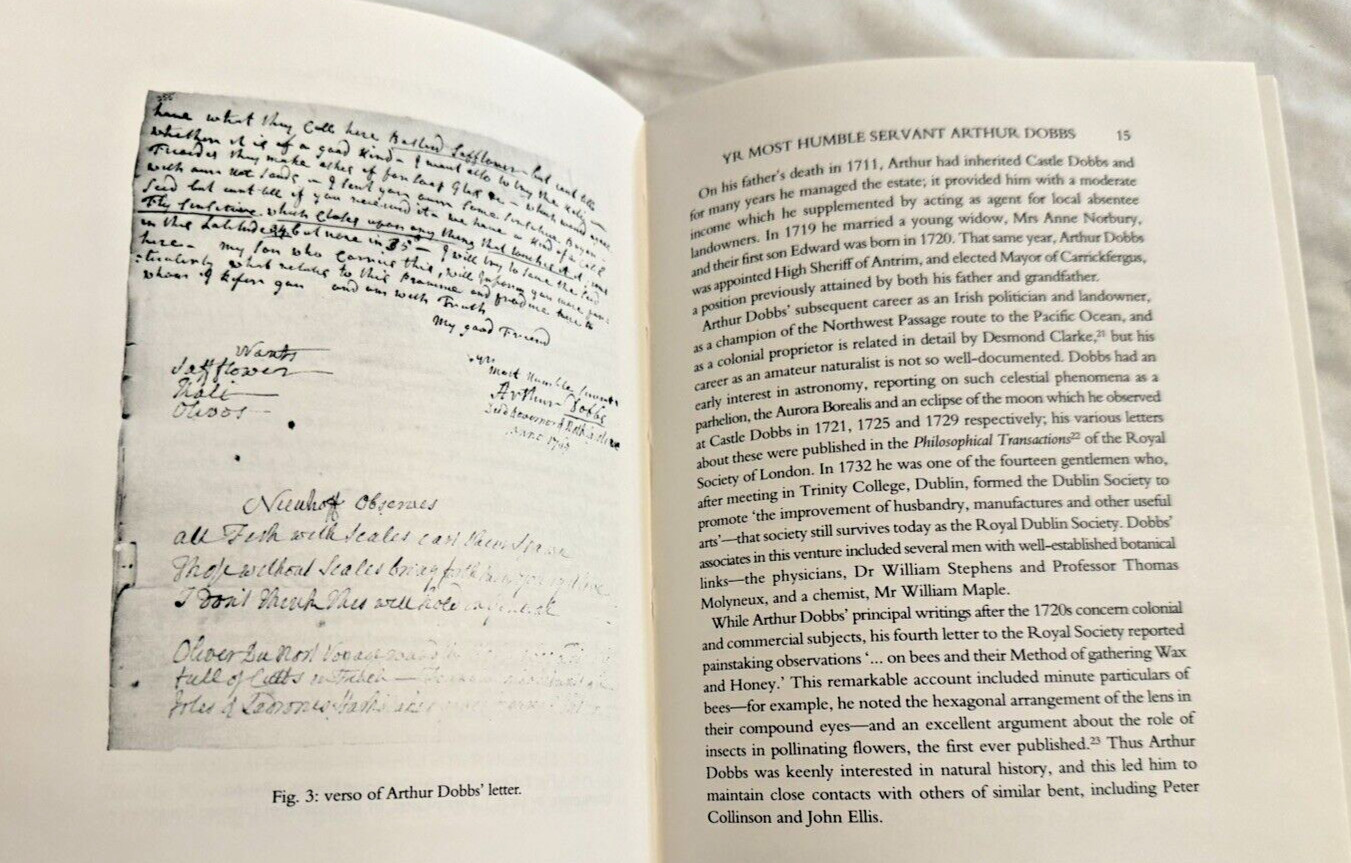 have what they Call here Bastard Safflower but cant tell
whether it is of a good kind - I want also to try the Kali
they make ashes of for Glass &c - which
with our Sands - I sent you some Sensitive
Seed but cant tell if you received it - we have a kind of a Catch
Fly Sensitive which Closes upon any thing that touches it
in this Latitude 34 but none in 35 - I will try to save the Seed
here - my Son who Carries this, will Inform you more
what relates to this Province and
whom I Refer you and am with Truth
My good Friend
Yr
most Humble Servant
Arthur Dobbs
Wants
Safflower
Kali
Olives
Nieuhoff Observes
all Fish with Scales cast their Spawn
Those without Scales bring forth
I Don't think this will hold in general
Oliver
full of
Fig. 3: verso of Arthur Dobbs' letter.
YR MOST HUMBLE SERVANT ARTHUR DOBBS 15
On his father's death in 1711, Arthur had inherited Castle Dobbs and
for many years he managed the estate; it provided him with a moderate
income which he supplemented by acting as agent for local absentee
landowners. In 1719 he married a young widow, Mrs Anne Norbury,
and their first son Edward was born in 1720. That same year, Arthur Dobbs
was appointed High Sheriff of Antrim, and elected Mayor of Carrickfergus,
a position previously attained by both his father and grandfather.
Arthur Dobbs' subsequent career as an Irish politician and landowner,
as a champion of the Northwest Passage route to the Pacific Ocean, and
as a colonial proprietor is related in detail by Desmond Clarke,²¹ but his
career as an amateur naturalist is not so well-documented. Dobbs had an
early interest in astronomy, reporting on such celestial phenomena as a
parhelion, the Aurora Borealis and an eclipse of the moon which he observed
at Castle Dobbs in 1721, 1725 and 1729 respectively; his various letters
about these were published in the Philosophical Transactions²² of the Royal
Society of London. In 1732 he was one of the fourteen gentlemen who,
after meeting in Trinity College, Dublin, formed the Dublin Society to
promote 'the improvement of husbandry, manufactures and other useful
arts'—that society still survives today as the Royal Dublin Society. Dobbs'
associates in this venture included several men with well-established botanical
links—the physicians, Dr William Stephens and Professor Thomas
Molyneux, and a chemist, Mr William Maple.
While Arthur Dobbs' principal writings after the 1720s concern colonial
and commercial subjects, his fourth letter to the Royal Society reported
painstaking observations '... on bees and their Method of gathering Wax
and Honey.' This remarkable account included minute particulars of
bees—for example, he noted the hexagonal arrangement of the lens in
their compound eyes—and an excellent argument about the role of
insects in pollinating flowers, the first ever published.²³ Thus Arthur
Dobbs was keenly interested in natural history, and this led him to
maintain close contacts with others of similar bent, including Peter
Collinson and John Ellis.